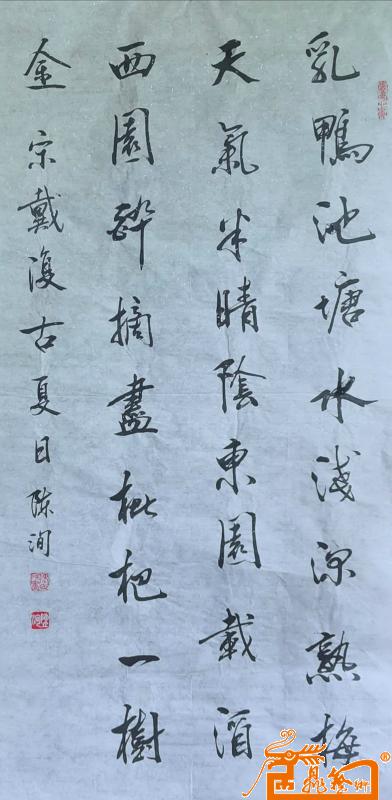 乳鴨池塘水淺深熟梅
天氣半晴陰東園載酒
西園醉摘盡枇杷一樹
金 宋戴復古夏日陈洵